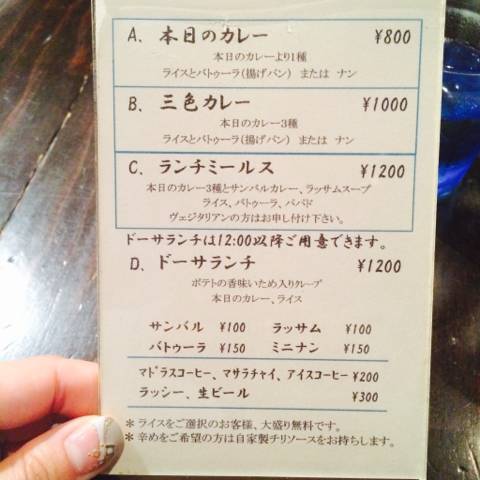 A. 本日のカレー ¥800
本日のカレーより1種
ライスとバトゥーラ(揚げパン) または ナン
B. 三色カレー ¥1000
本日のカレー3種
ライスとバトゥーラ(揚げパン) または ナン
C. ランチミールス ¥1200
本日のカレー3種とサンバルカレー、ラッサムスープ
ライス、バトゥーラ、パパド
ヴェジタリアンの方はお申し付け下さい。
ドーサランチは12:00以降ご用意できます。
D. ドーサランチ ¥1200
ポテトの香味いため入りクレープ
本日のカレー、ライス
サンバル ¥100 ラッサム ¥100
バトゥーラ ¥150 ミニナン ¥150
マドラスコーヒー、マサラチャイ、アイスコーヒー ¥200
ラッシー、生ビール ¥300
*ライスをご選択のお客様、大盛り無料です。
*辛めをご希望の方は自家製チリソースをお持ちします。